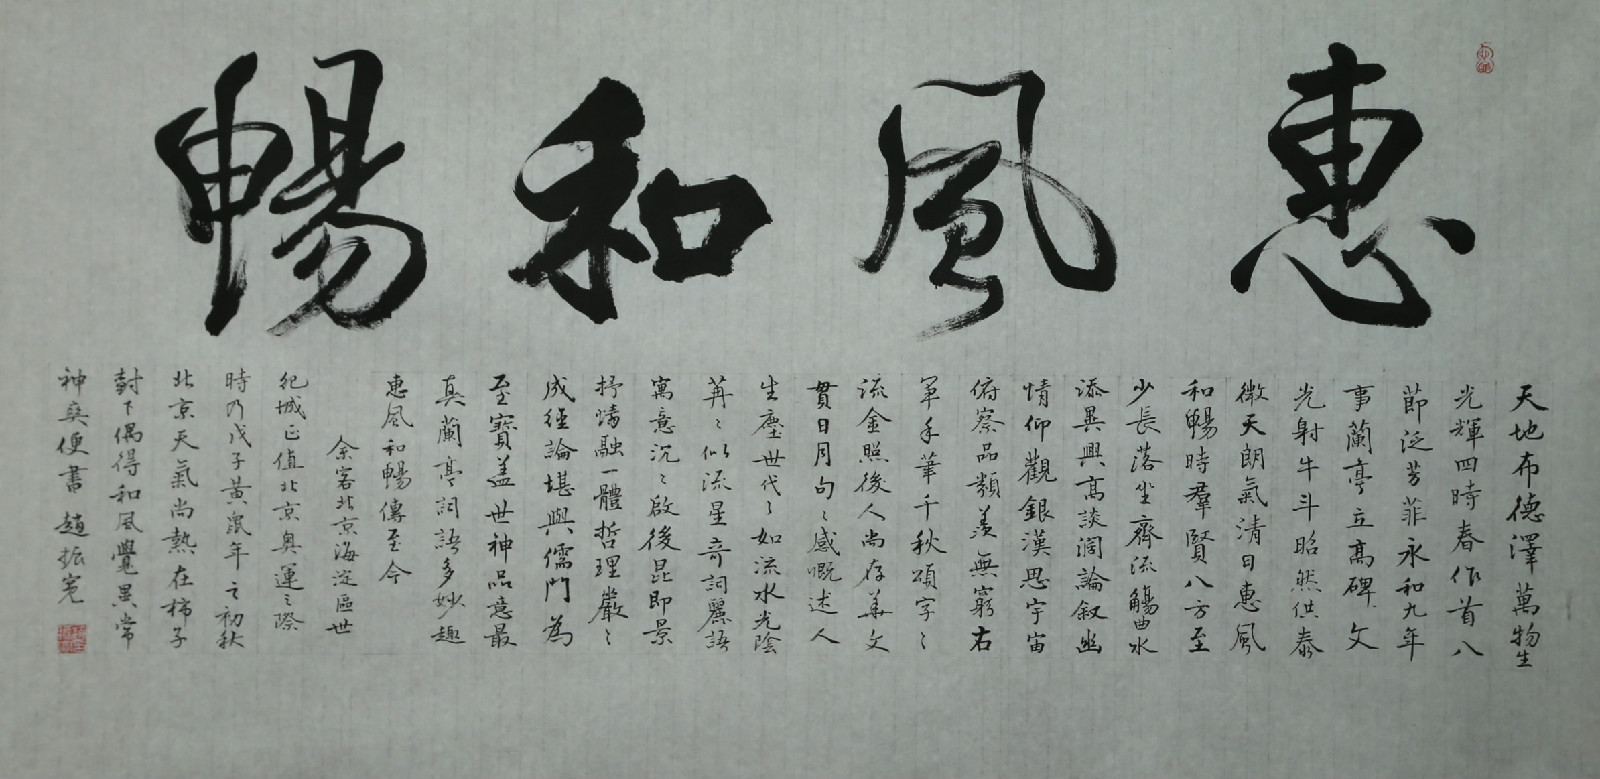 惠風和暢
天地布德澤萬物生
光輝四時春作首八
節泛芳菲永和九年
事蘭亭立高碑文
光射牛斗昭然供泰
微天朗氣清日惠風
和暢時羣賢八方至
少長落坐齊流觴曲水
添異興高談濶論叙幽
情仰觀銀漢思宇宙
俯察品類羨無窮右
軍手筆千秋頌字々
流金照後人尚存華文
貫日月句々感慨述人
生塵世代々如流水光陰
苒々似流星奇詞麗語
寓意沉々啟後昆即景
抒情融一體哲理嚴々
成經論堪與儒門為
至寶盖世神品意最
真蘭亭詞語多妙趣
惠風和暢傳至今
余客北京海淀區世
紀城正值北京奥運之際
時乃戊子黃鼠年之初秋
北京天氣尚熱在柿子
樹下偶得和風覺異常
神爽便書 趙振寬